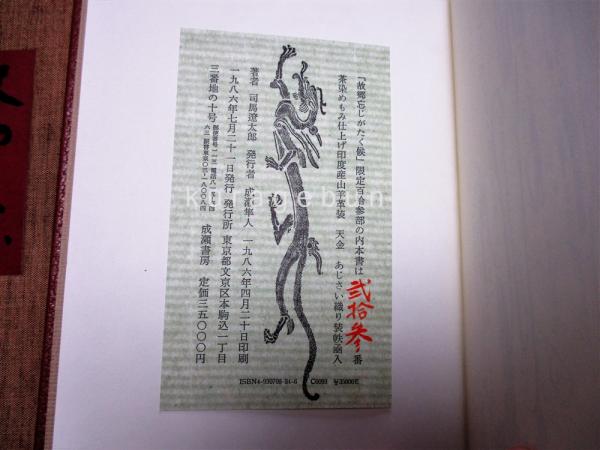 「故郷忘じがたく候」限定百拾参部の内本書は弐拾参番
茶染めもみ仕上げ印度産山羊革装 天金 あじさい織り装帙函入
著者 司馬遼太郎 発行者 成瀬隼人 一九八六年四月二十日印刷
一九八六年七月二十一日発行 発行所 東京都文京区本駒込一丁目
三番地の十号 成瀬書房 定価三五〇〇〇円
ISBN4-930708-24-6 C0093 ¥35000E